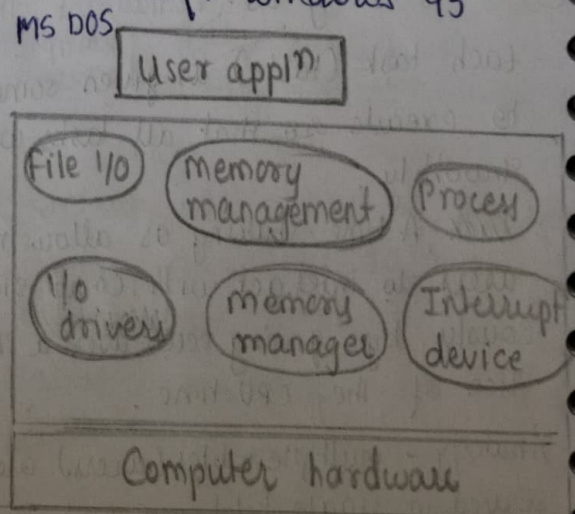 windows 95
MS DOS
User appl^n
File I/O
memory
management
Process
I/O
drivers
memory
manager
Interrupt
device
Computer hardware